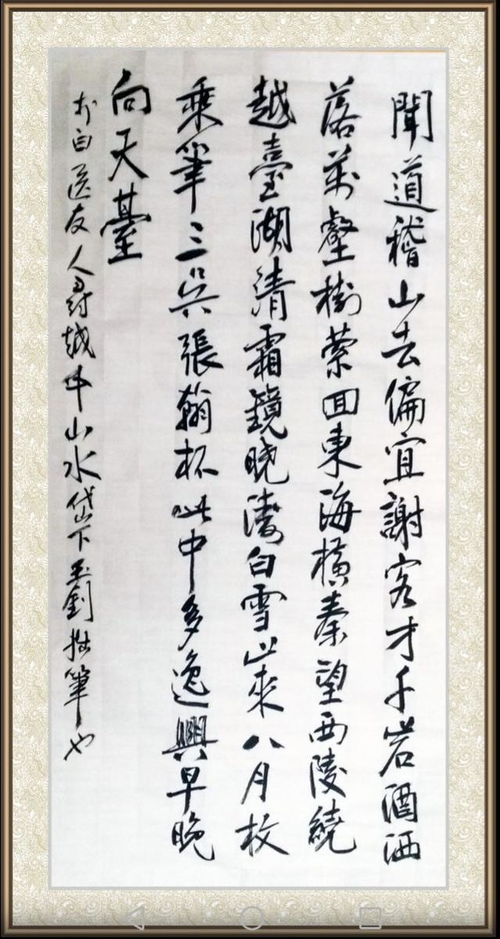 聞道稽山去偏宜謝客才千岩酒洒
落萬壑樹縈回東海橫秦望西陵繞
越臺湖清霜鏡晓濤白雪山來八月枚
乘筆三吳張翰杯此中多逸興早晚
向天臺
李白送友人尋越中山水岱下釗拙筆也